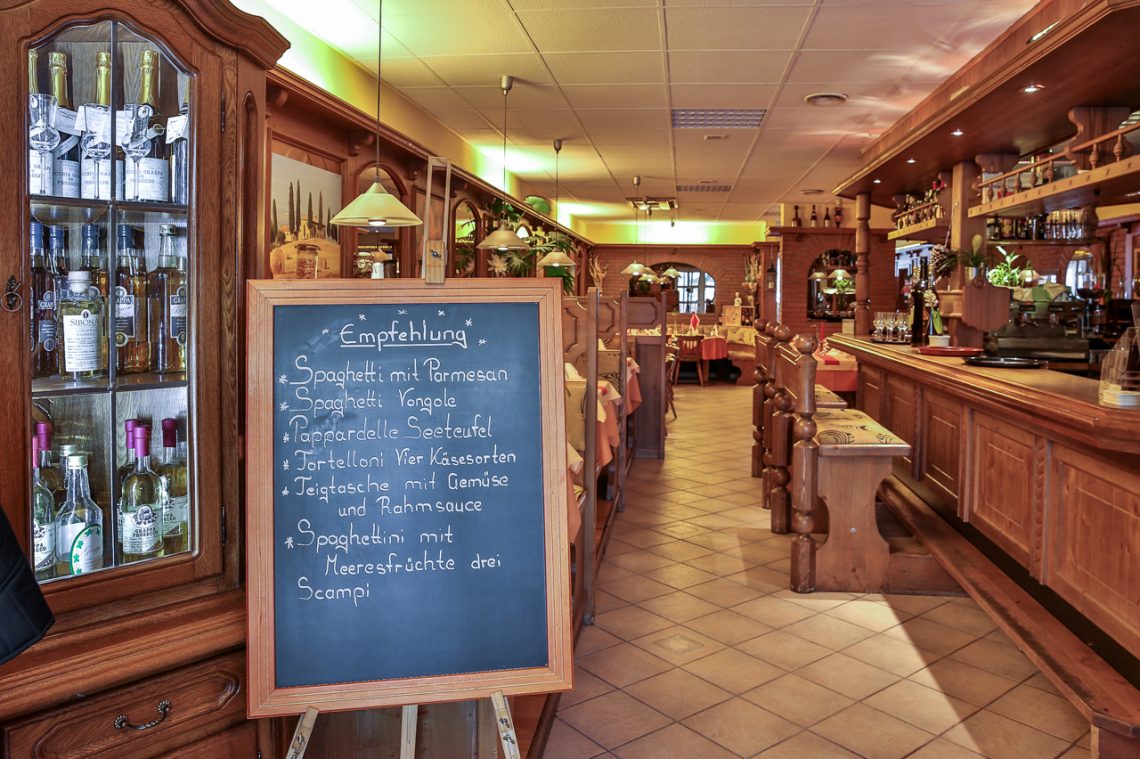 Empfehlung
* Spaghetti mit Parmesan
* Spaghetti Vongole
* Pappardelle Seeteufel
* Tortelloni Vier Käsesorten
* Teigtasche mit Gemüse
und Rahmsauce
* Spaghettini mit
Meeresfrüchte drei
Scampi
PROSECCO
SIBONA
GRAPPA
GRAPPA
PROSECCO